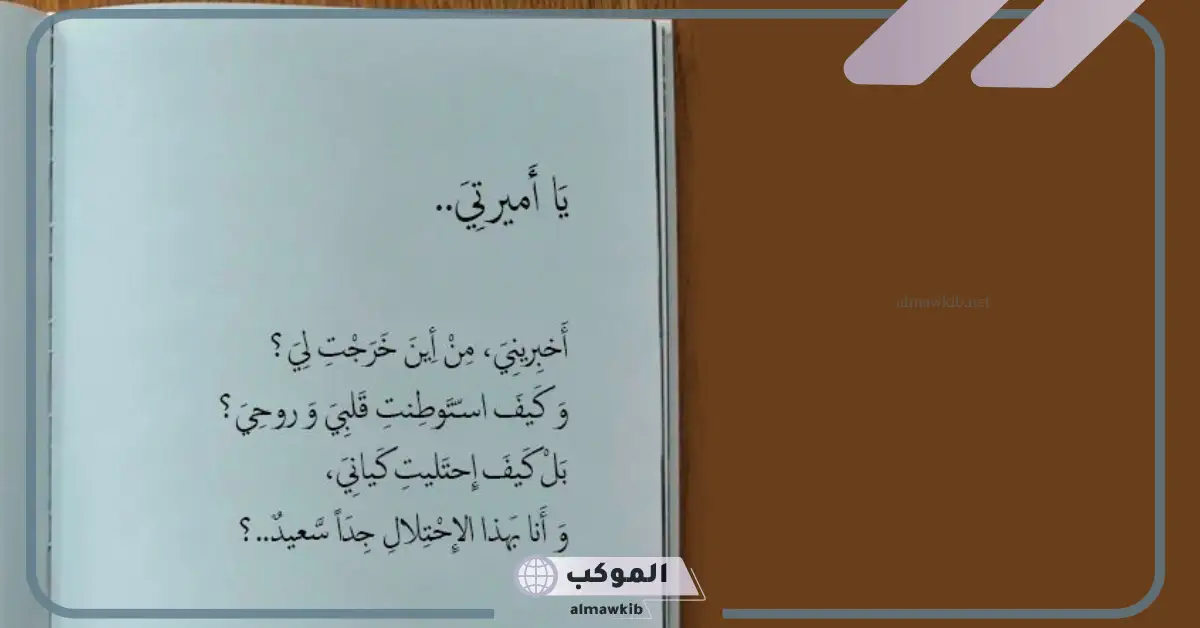 يَا أَميرتِيَ..
أَخبِرِينِيَ، مِنْ أَينَ خَرَجْتِ لِيَ؟
وَ كَيفَ استَّوطِنتِ قَلبِيَ وَ روحِيَ؟
بَلْ كَيفَ إِحتَليتِ كَيانِيَ،
وَ أَنا بَهذا الإِحْتِلالِ جِدَاً سَّعيدٌ..؟
almawkib.net
الموكب
almawkib